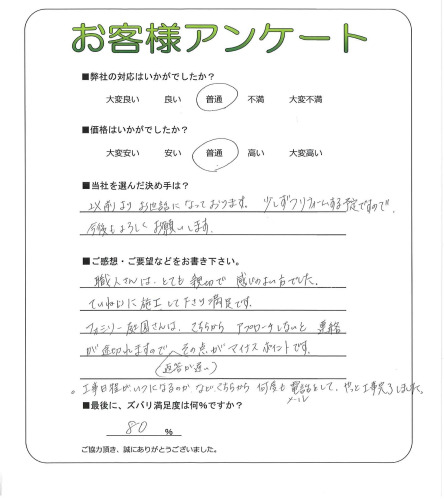 お客様アンケート
■弊社の対応はいかがでしたか？
大変良い 良い 普通 不満 大変不満
■価格はいかがでしたか？
大変安い 安い 普通 高い 大変高い
■当社を選んだ決め手は？
以前よりお世話になっております。少しずつリフォームする予定ですので、
今後もよろしくお願いします。
■ご感想・ご要望などをお書き下さい。
職人さんは、とても親切で感じのよい方でした。
ていねいに施工して下さり満足です。
ファミリー庭園さんは、こちらからアプローチしないと連絡
が途切れますので、その点がマイナスポイントです。
(返答が遅い)
。工事日程がいつになるのかなど、こちらから何度も電話をして、やっと工事完了しました。
メール
■最後に、ズバリ満足度は何%ですか？
80 %
ご協力頂き、誠にありがとうございました。